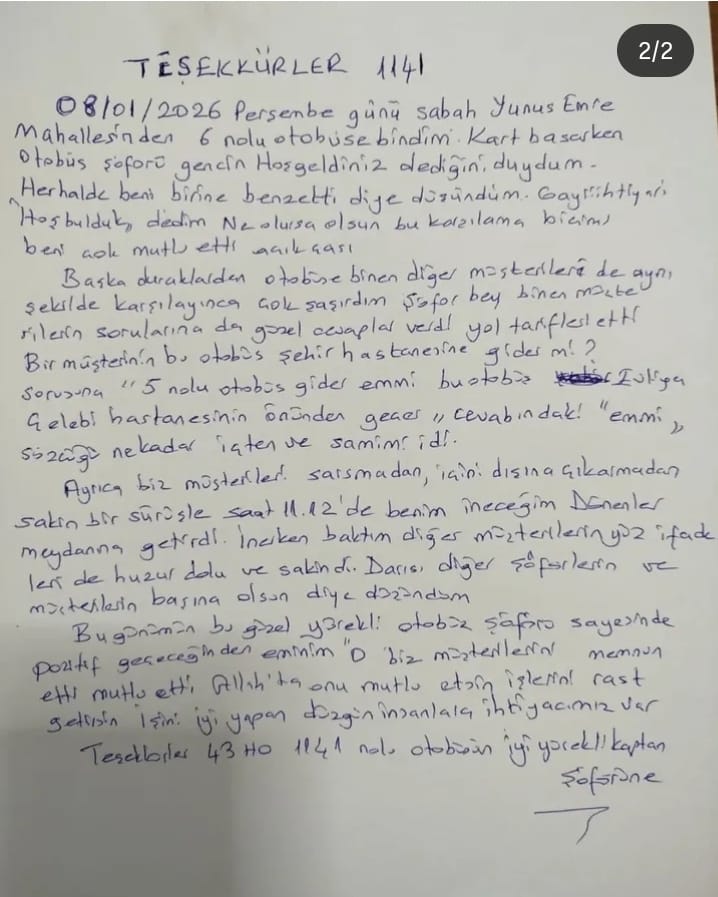 2/2
TEŞEKKÜRLER 1141
08/01/2026 Perşembe günü sabah Yunus Emre
Mahallesinden 6 nolu otobüse bindim. Kart basarken
Otobüs şoförü gencin Hoşgeldiniz dediğini duydum.
Herhalde beni birine benzetti diye düşündüm. Gayriihtiyari
Hoşbulduk, dedim Ne olursa olsun bu karşılama biçimi
beni çok mutlu etti açıkçası
Başka duraklardan otobüse binen diğer müşterilere de aynı
şekilde karşılayınca çok şaşırdım Şoför bey binen müşte
rilerin sorularına da güzel cevaplar verdi yol tarifleri etti
Bir müşterinin bu otobüs şehir hastanesine gider mi?
sorusuna "5 nolu otobüs gider emmi bu otobüs Evliya
Çelebi hastanesinin önünden geçer" cevabındaki "emmi"
sözcüğü nekadar içten ve samimi idi.
Ayrıca biz müşterileri sarsmadan, içini dışına çıkarmadan
sakin bir sürüşle saat 11.12'de benim ineceğim Dönenler
meydanına getirdi. İnerken baktım diğer müşterilerin yüz ifade
leri de huzur dolu ve sakindi. Darısı diğer şöförlerin ve
müşterilerin başına olsun diye düşündüm
Bugünümün bu güzel yürekli otobüs şöförü sayesinde
pozitif geçeceğinden eminim "O biz müşterilerini memnun
etti mutlu etti, Allah'ta onu mutlu etsin işlerini rast
getirsin İşini iyi yapan düzgün insanlara ihtiyacımız var
Teşekkürler 43 HO 1141 nolu otobüsün iyi yürekli kaptan
Şöförüne